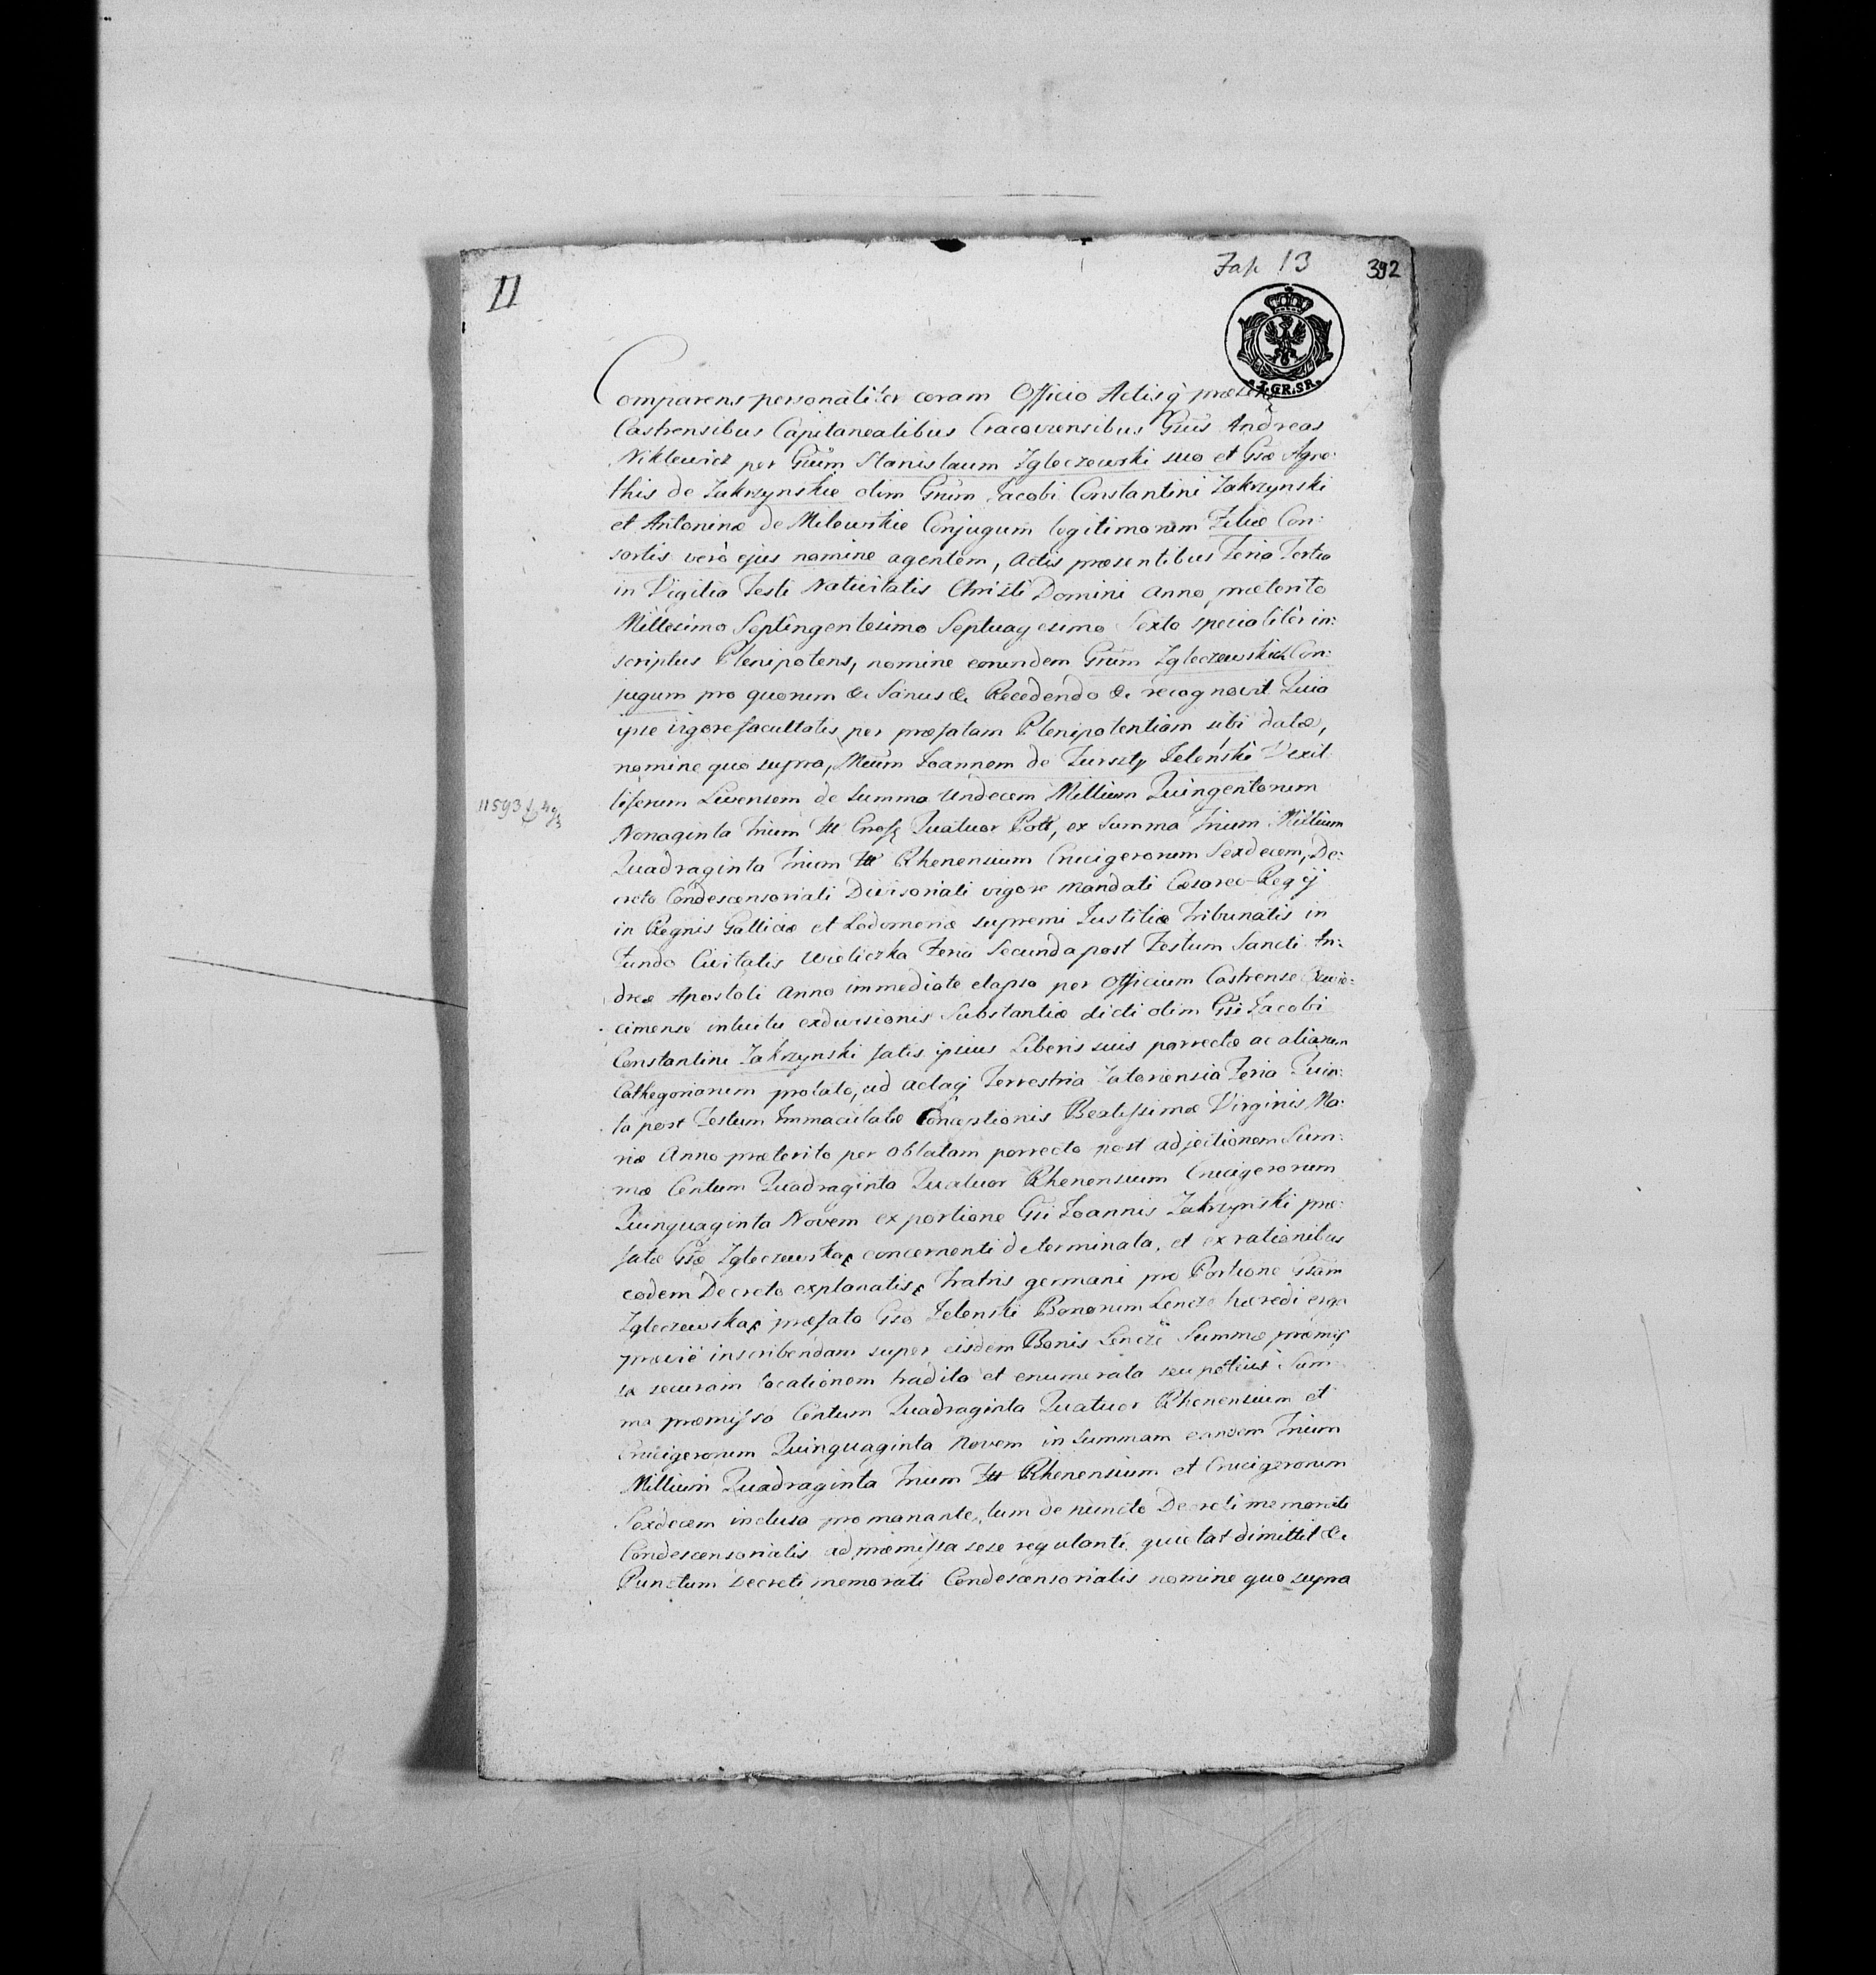 II
Fas. 13
392
4.GR.SR.
Comparens personaliter coram Officio Actisq̀ praesen
Castrensibus Capitanealibus Cracoviensibus Gñus Andreas
Niklewicz per Gñum Stanislaum Zgleczewski suo et Gsae Agne:
this de Zakrzynskie olim Gnũm Jacobi Constantini Zakrzynski
et Antoninae de Milewskie Conjugum legitimorum Filiae Con:
sortis verò ejus nomine agentem, Actis praesentibus Feria Tertia
in Vigilia Festi Nativitatis Christi Domini Anno praeterito
Millesimo Septingentesimo Septuagesimo Sexto specialitèr in:
scriptus Plenipotens, nomine eorundem Gnũm Zgleczewskich Con:
jugum pro quorum &c Sanus &c Recedendo &c recognovit Quia
ipse vigore facultatis per praefatam Plenipotentiam sibi datae,
nomine quo supra, Mcum Joannem de Zelenski Vexil
liferum Livensem de Summa Undecem Millium Quingentorum
11593
Nonaginta Trium Quatuor Poll, ex Summa Trium Millium
Quadraginta Trium Rhenensium Crucigerorum Sexdecem, De:
creto Condescensoriali Divisoriali vigore Mandati Caesareo-Regij
in Regnis Galliciae et Lodomeriae supremi Justitiae Tribunalis in
Fundo Civitatis Wieliczka Feria Secunda post Festum Sancti An:
dreae Apostoli Anno immediate elapso per Officium Castrense Oswie:
cimense intuitu exdivisionis Substantiae dicti olim Gsi Jacobi
Constantini Zakrzynski fatis ipsius Liberis suis porrectae ac aliarum
Cathegoriarum prolato, ad actaq̀ Terrestria Zatoriensia Feria Quin:
ta post Festum Immaculatae Conceptionis Beatissimae Virginis Ma:
riae Anno praeterito per oblatam porrecto post adjectionem Sum:
mae Centum Quadraginta Quatuor Rhenensium Crucigerorum
Quinquaginta Novem ex portione Gsi Joannis Zakrzynski prae:
fatae Gsae Zgleczewska concernenti determinata, et ex rationibus
eodem Decreto explanatis Fratris germani pro Portione Gsam
Zgleczewska praefato Gso Zelenski Bonorum Lencze haeredi erga
praevie inscribendam super eisdem Bonis Lencze Summae praemis
sae securam locationem tradita et enumerata seu potius Sum
ma praemissa Centum Quadraginta Quatuor Rhenensium et
Crucigerorum Quinquaginta Novem in Summam eandem Trium
Millium Quadraginta Trium Rhenensium et Crucigerorum
Sexdecem inclusa promanante, tum de puncto Decreti memorati
Condescensorialis ad praemissa sese regulanti quietat dimittit &c
Punctum Decreti memorati Condescensorialis nomine quo supra